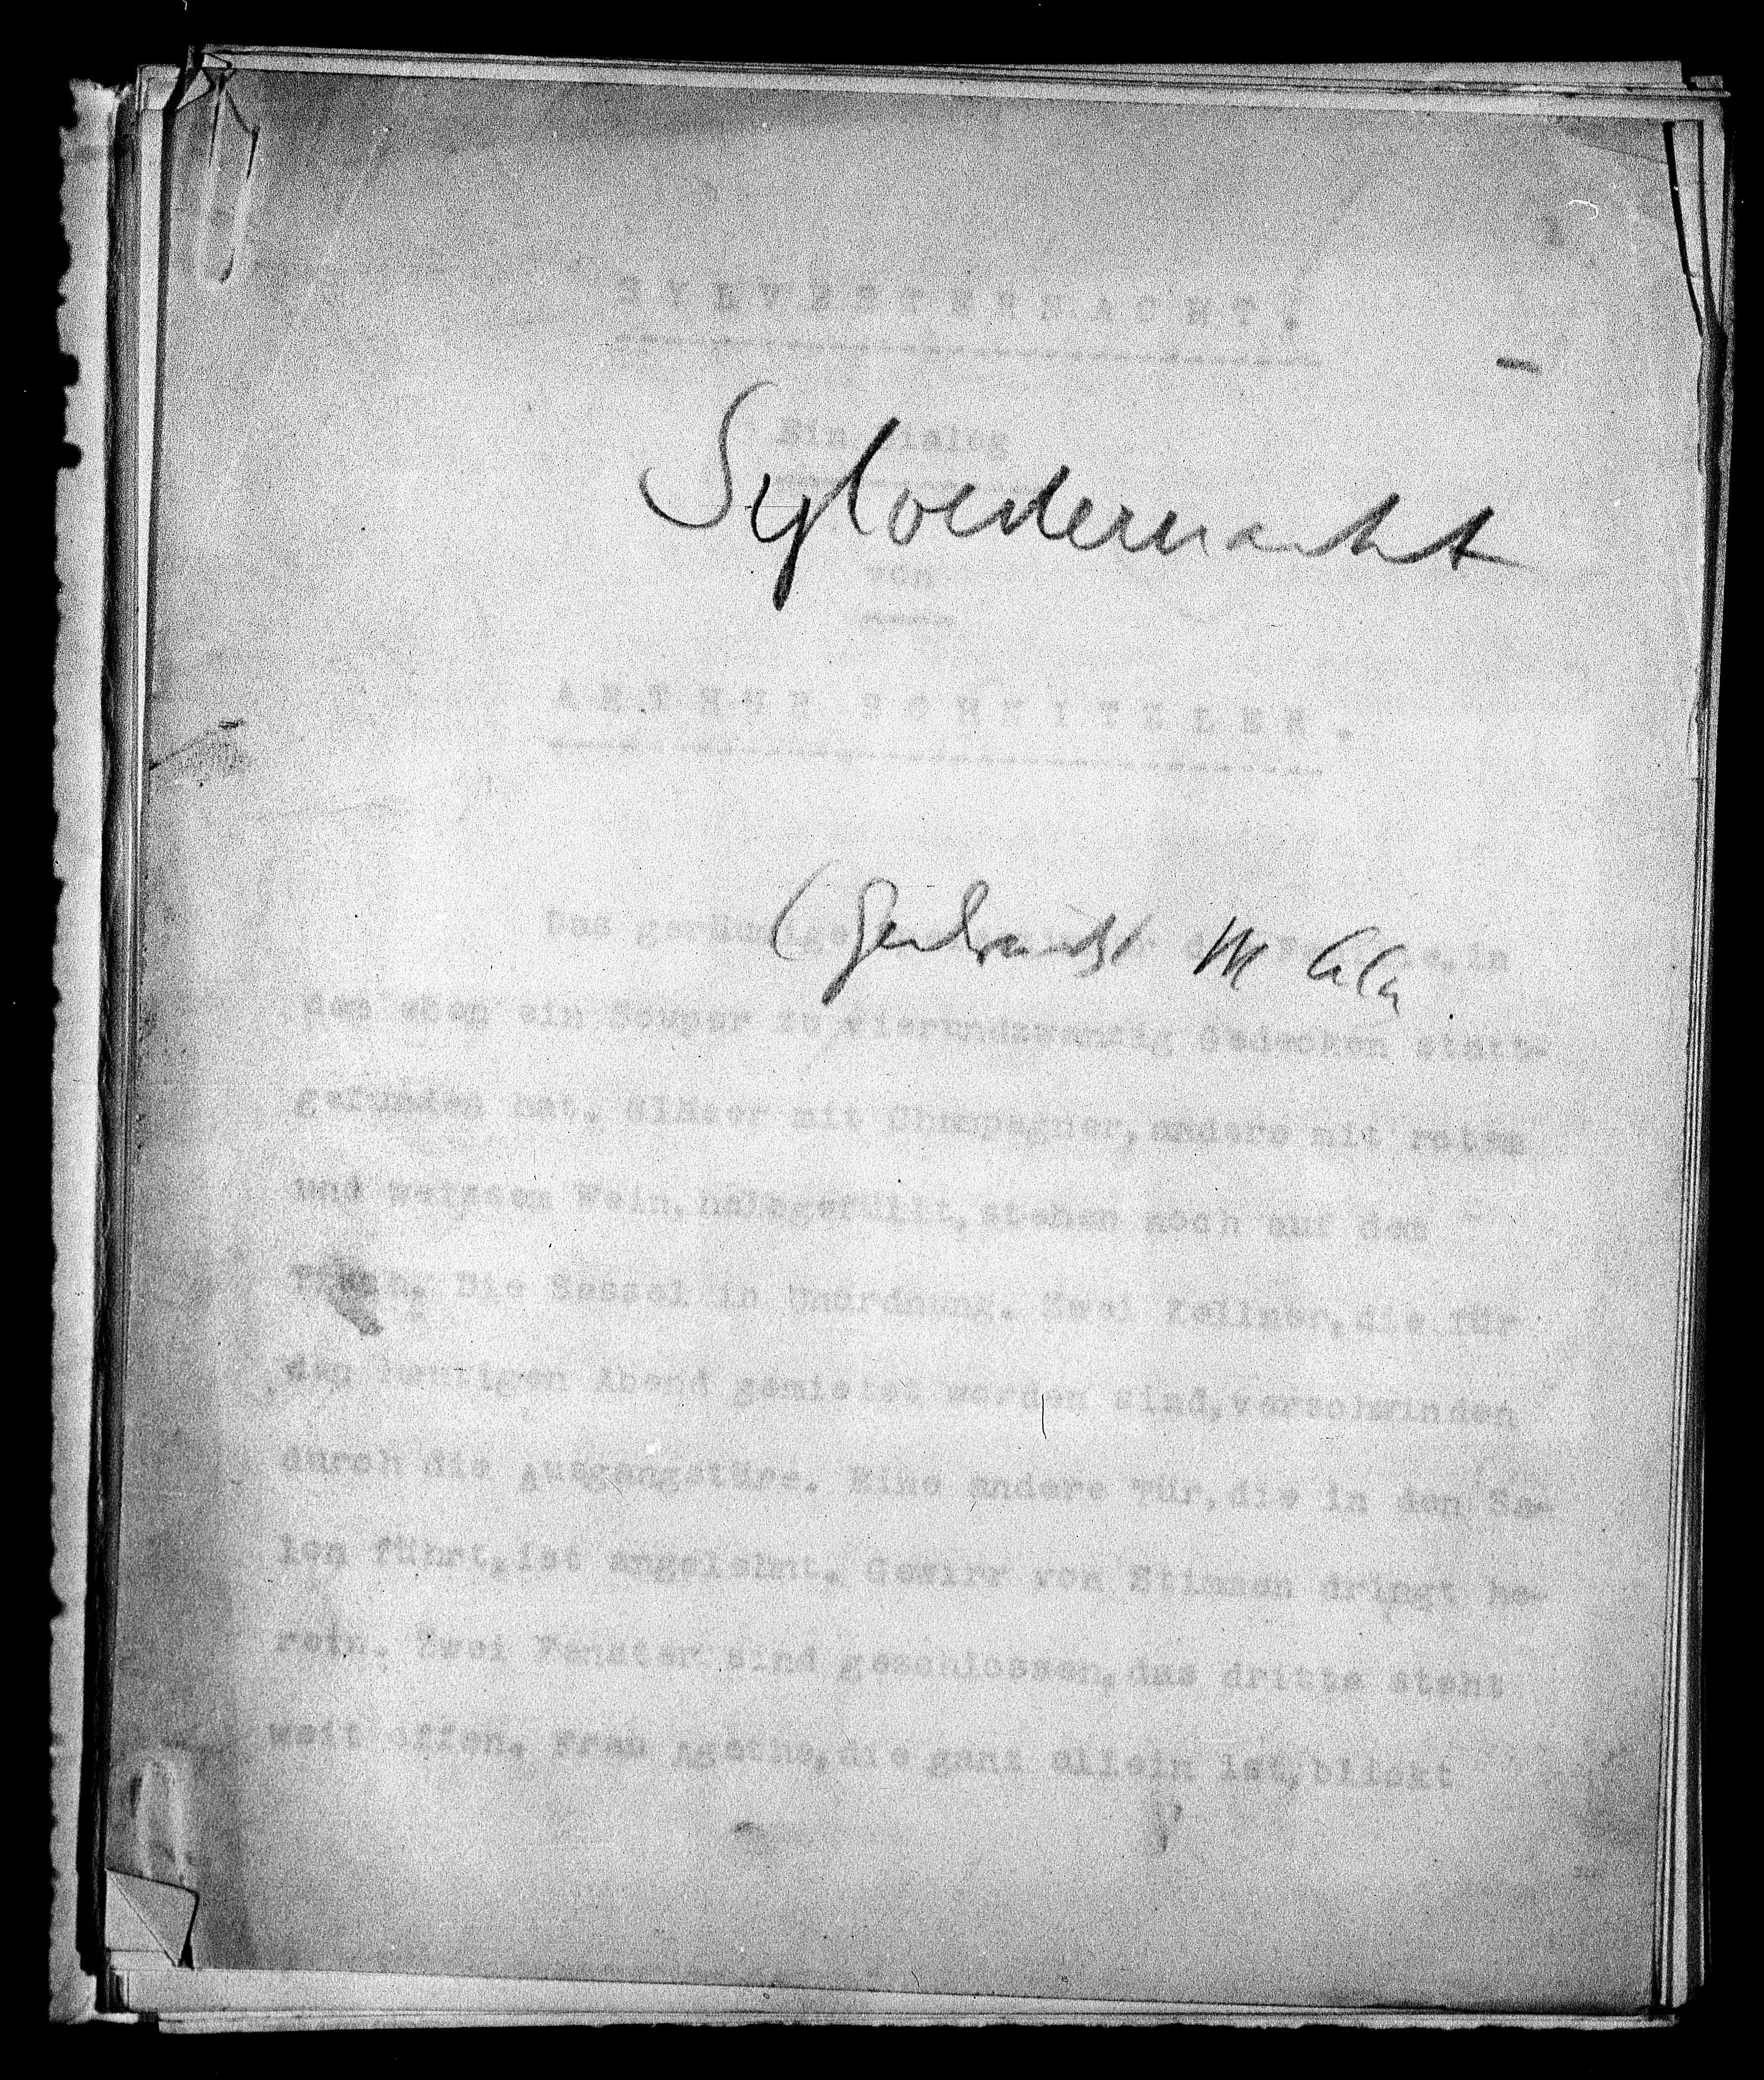 SYLVESTERNACHT.
Ein Dialog
Sylvesternacht
von
ARTHUR SCHNITZLER.
Das geräumige
(Gedruckt
in
dem eben ein Souper zu vierundzwanzig Gedecken statt-
gefunden hat. Gläser mit Champagner, andere mit rotem
und weissem Wein, halbgefüllt, stehen noch auf dem
Tisch. Die Sessel in Unordnung. Zwei Kellner, die für
den heutigen Abend gemietet worden sind, verschwinden
durch die Ausgangstüre. Eine andere Tür, die in den Sa-
lon führt, ist angelehnt. Gewirr von Stimmen dringt he-
rein. Zwei Fenster sind geschlossen, das dritte steht
weit offen. Frau Agathe, die ganz allein ist, blickt